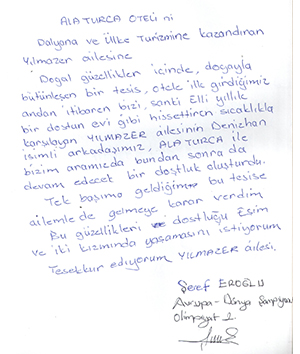 ALA TURCA OTELİ ni
Dalyana ve Ülke Turizmine kazandıran
Yılmazer ailesine
Doğal güzellikler içinde, doğayla
bütünleşen bir tesis, otele ilk girdiğimiz
andan itibaren bizi, sanki Elli yıllık
bir dostun evi gibi hissettiren sıcaklıkla
karşılayan YILMAZER ailesinin Denizhan
isimli arkadaşımız, ALA TURCA ile
bizim aramızda bundan sonra da
devam edecek bir dostluk oluşturdu.
Tek başıma geldiğim bu tesise
ailemle de gelmeye karar verdim
Bu güzellikleri ve dostluğu Eşim
ve iki kızımında yaşamasını istiyorum
Teşekkür ediyorum YILMAZER ailesi.
Şeref EROĞLU
Avrupa - Dünya Şampiyonu
Olimpiyat 2.